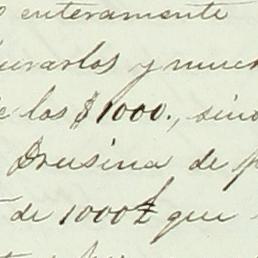 enteramente
urarlos y muc
las $1000., sino
Drusina de p
de 1000 que